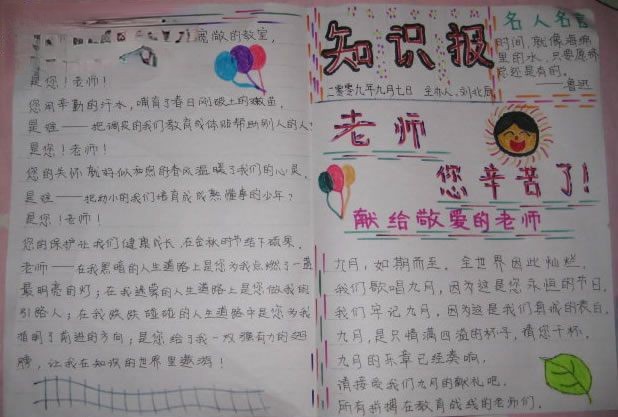 宽敞的教室,
是您！老师！
您用辛勤的汗水，哺育了春日刚破土的嫩苗。
是谁——把调皮的我们教育成体贴帮助别人的人
是您！老师！
您的关怀就好似和煦的春风温暖了我们的心灵。
是谁——把幼小的我们培育成成熟懂事的少年？
是您！老师！
您的保护让我们健康成长，在金秋时节结下硕果。
老师——在我黑暗的人生道路上是您为我点燃了一盏
最明亮的灯；在我迷茫的人生道路上是您做我的
引路人；在我跌跌碰碰的人生道路中是您为我
指明了前进的方向；是您给了我一双强有力的翅
膀，让我在知识的世界里遨游！
知识报
二零零九年九月七日 主办人：刘北辰
名人名言
时间，就像海绵
里的水，只要愿挤
总还是有的。
——鲁迅
老师
您辛苦了！
献给敬爱的老师
九月，如期而至。全世界因此灿烂。
我们歌唱九月，因为这是您永恒的节日。
我们牢记九月，因为这是我们真诚的表白。
九月，是只情满四溢的杯子，请您干杯。
九月的乐章已经奏响，
请接受我们九月的献礼吧。
所有拼搏在教育战线的老师们。